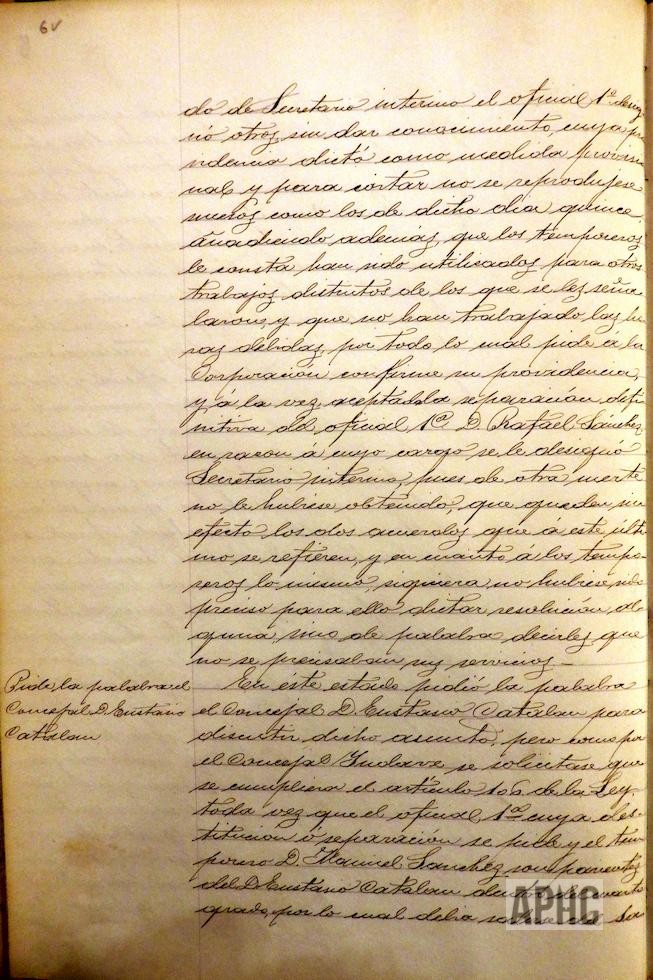 6v
do de Secretario interino el oficial 1º desig
nó otros, sin dar conocimiento, cuya pro
videncia dictó como medida provisio
nal y para cortar no se reprodujese
sucesos como los de dicho dia quince,
añadiendo además, que los temporeros
le consta han sido utilizados para otros
trabajos distintos de los que se les seña
laron, y que no han trabajado las ho
ras debidas, por todo lo cual pide á la
Corporación confirme su providencia,
y á la vez, aceptada la separación defi
nitiva del oficial 1º D. Rafael Sánchez
en razon á cuyo cargo se le designó
Secretario interino, pues de otra suerte
no le hubiese obtenido, que queden sin
efecto los dos acuerdos que á este últi
mo se refieren, y en cuanto á los tempo-
reros lo mismo, siquiera no hubiese sido
preciso para ello dictar resolución al
guna, sino de palabra decirles que
no se precisaban sus servicios.—
Pide la palabra el
Concejal D. Eustasio
Catalan
En este estado pidió la palabra
el Concejal D. Eustasio Catalan para
discutir dicho asunto, pero como por
el Concejal se solicitase que
se cumpliera el artículo 106 de la Ley,
toda vez que el oficial 1º cuya des-
titución ó separación se pide y el tem
porero D. Manuel Sanchez son parientes
del D. Eustasio Catalan dentro del cuarto
grado, por lo cual debia salirse del Sa
APHC